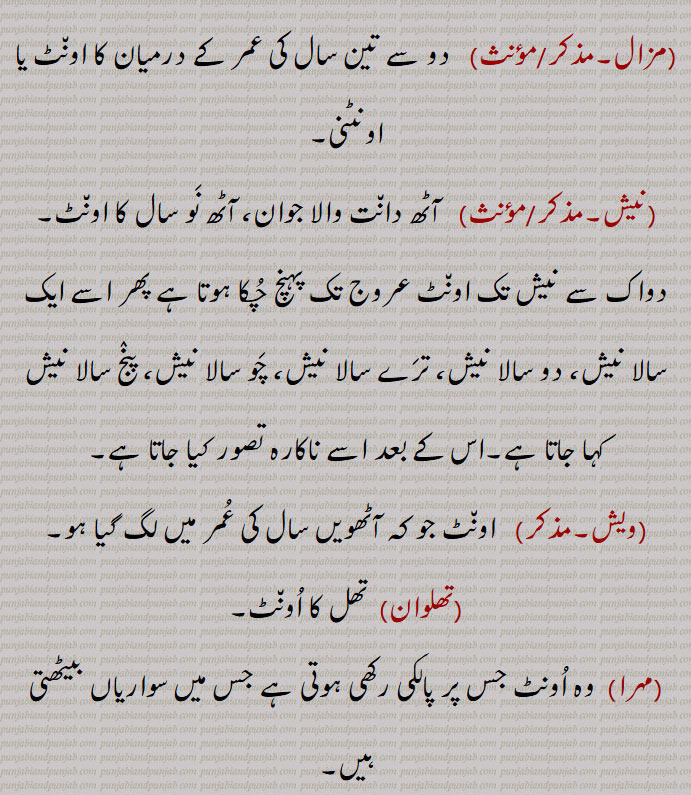 (مزال۔مذکر/مؤنث) دو سے تین سال کی عمر کے درمیان کا اونٹ یا
اونٹنی۔
(نیش۔مذکر/مؤنث) آٹھ دانت والا جوان، آٹھ نَو سال کا اونٹ۔
دواک سے نیش تک اونٹ عروج تک پہنچ چُکا ہوتا ہے پھر اسے ایک
سالا نیش، دو سالا نیش، ترَے سالا نیش، چَو سالا نیش، پنج سالا نیش
کہا جاتا ہے۔اس کے بعد اسے ناکارہ تصور کیا جاتا ہے۔
(ویش۔مذکر) اونٹ جو کہ آٹھویں سال کی عُمر میں لگ گیا ہو۔
(تھلوان) تھل کا اُونٹ۔
(مہرا) وہ اُونٹ جس پر پالکی رکھی ہوتی ہے جس میں سواریاں بیٹھتی
ہیں۔